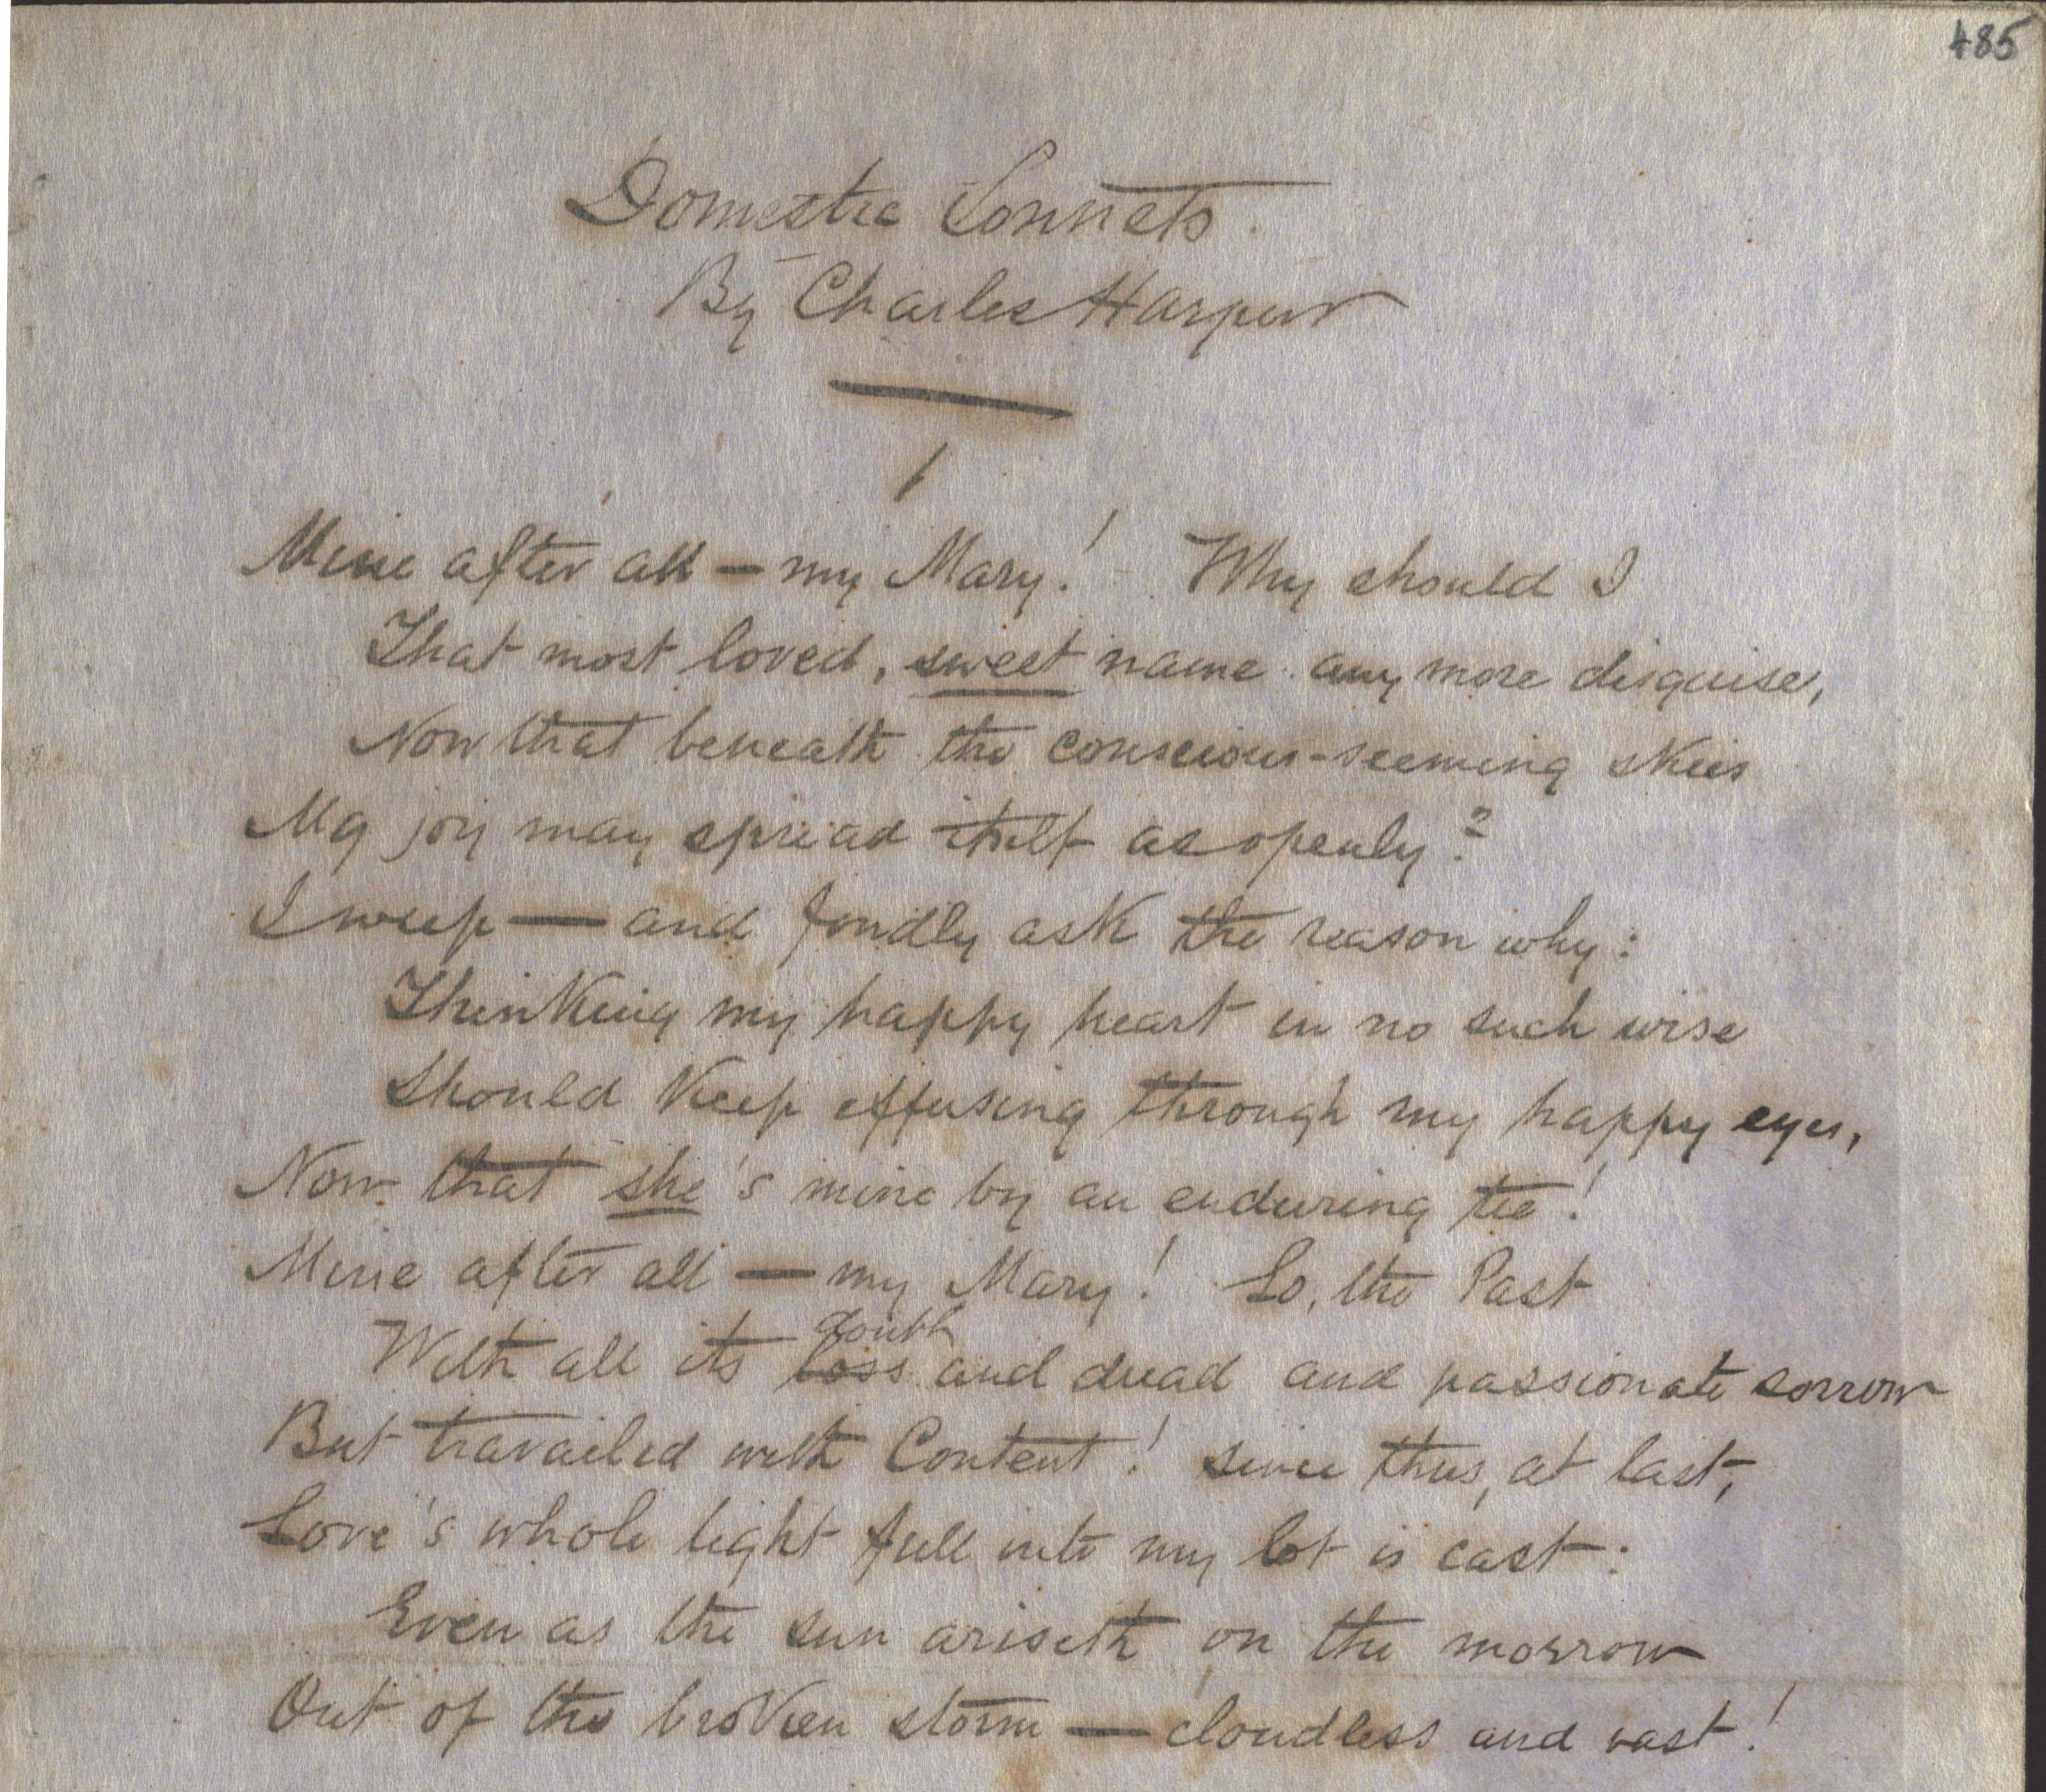 485
Domestic Sonnets.
By Charles Harpur
1
Mine after all — my Mary! Why should I
That most loved, sweet name any more disguise,
Now that beneath the conscious-seeming skies
My joy may spread itself as openly?
I weep — and fondly ask the reason why:
Thinking my happy heart in no such wise
Should keep effusing through my happy eyes,
Now that she's mine by an enduring tie!
Mine after all — my Mary! Lo, the Past
doubt
With all its loss and dread and passionate sorrow
But travailed with Content! since thus, at last,
Love's whole light full into my lot is cast:
Even as the sun ariseth on the morrow
Out of the broken storm — cloudless and vast!